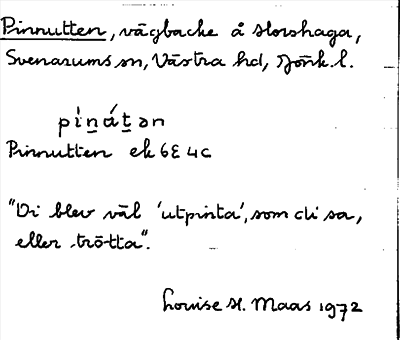 Pinnutten, vägbacke å Horshaga,
Svenarums sn, Västra hd, Jönk. l.
pìn̲át̲ən
Pinnutten ek 6E 4c
"Di blev väl 'utpinta', som di sa,
eller trötta".
Louise H. Maas 1972